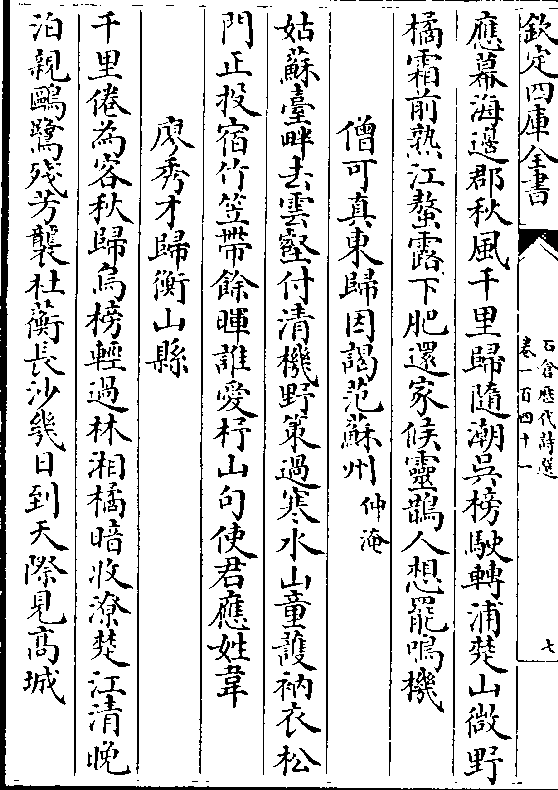 欽定四庫全書
石倉歷代詩選
卷一百四十一
七
應幕海邊郡秋風千里歸隨潮吳榜駛轉浦楚山微野
橘霜前熟江螯露下肥還家候靈鵲人想罷鳴機
僧可真東歸因謁范蘇州仲淹
姑蘇臺畔去雲壑付清機野策過寒水山童護衲衣松
門正投宿竹笠帶餘暉誰愛杼山句使君應姓韋
廖秀才歸衡山縣
千里倦為客秋歸烏榜輕過林湘橘暗收潦楚江清晚
泊親鷗鷺殘芳襲杜蘅長沙幾日到天際見高城